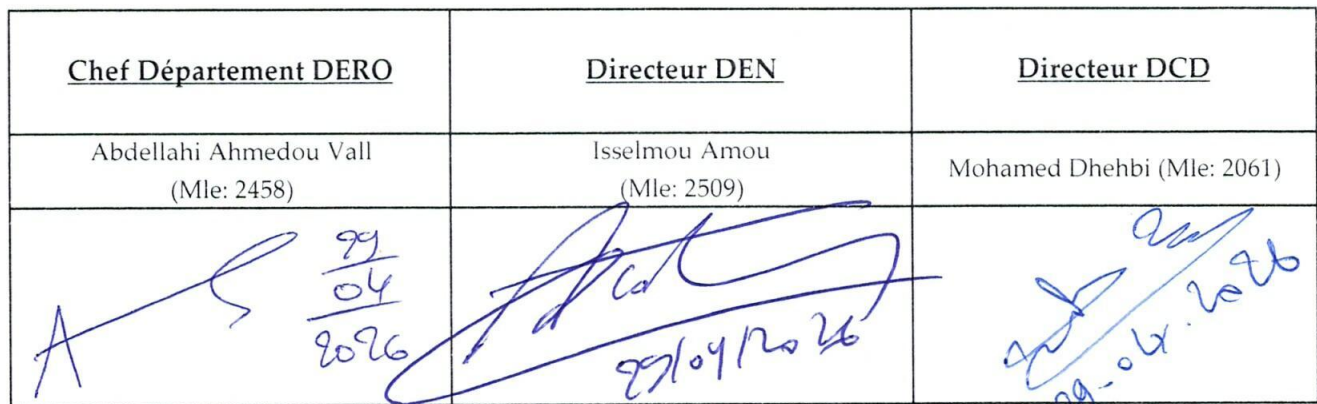 Chef Département DERO
Directeur DEN
Directeur DCD
Abdellahi Ahmedou Vall
(Mle: 2458)
Isselmou Amou
(Mle: 2509)
Mohamed Dhehbi (Mle: 2061)
29
04
2026
29/04/2026
29-04.2026